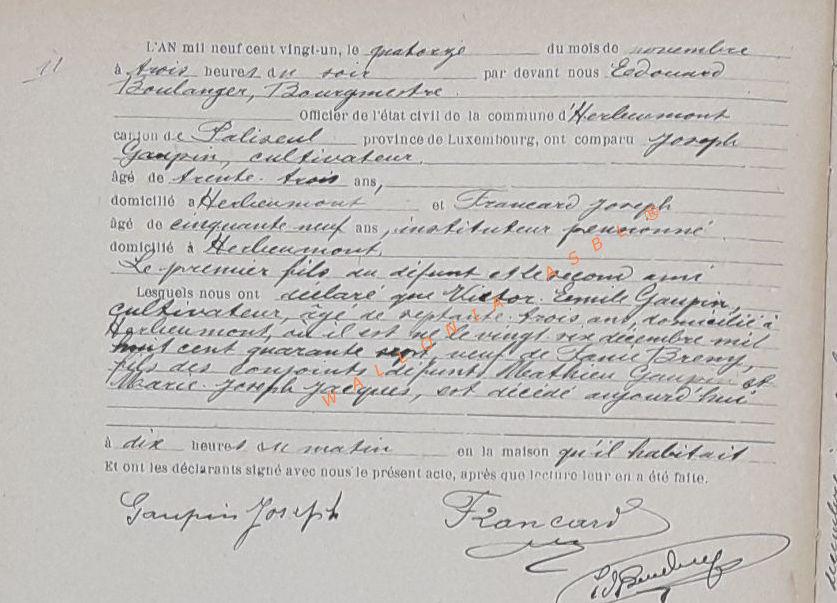 11
L'AN mil neuf cent vingt-un, le quatorze du mois de novembre
à trois heures du soir par devant nous Edouard
Boulanger, Bourgmestre
Officier de l'état civil de la commune d'Herbeumont
canton de Paliseul province de Luxembourg, ont comparu Joseph
Gaupin, cultivateur,
âgé de trente-trois ans,
domicilié à Herbeumont et Francard Joseph
âgé de cinquante neuf ans, instituteur pensionné
domicilié à Herbeumont,
Le premier fils du défunt et le second ami
Lesquels nous ont déclaré que Victor-Emile Gaupin,
cultivateur, âgé de septante-trois ans, domicilié à
Herbeumont, où il est né le vingt six décembre mil
huit cent quarante sept, veuf de Fanie Breny,
fils des conjoints défunts Mathieu Gaupin et
Marie-Joseph Jacques, est décédé aujourd'hui
à dix heures du matin en la maison qu'il habitait
Et ont les déclarants signé avec nous le présent acte, après que lecture leur en a été faite.
Gaupin Joseph Francard
WALLONIA ASBL ®